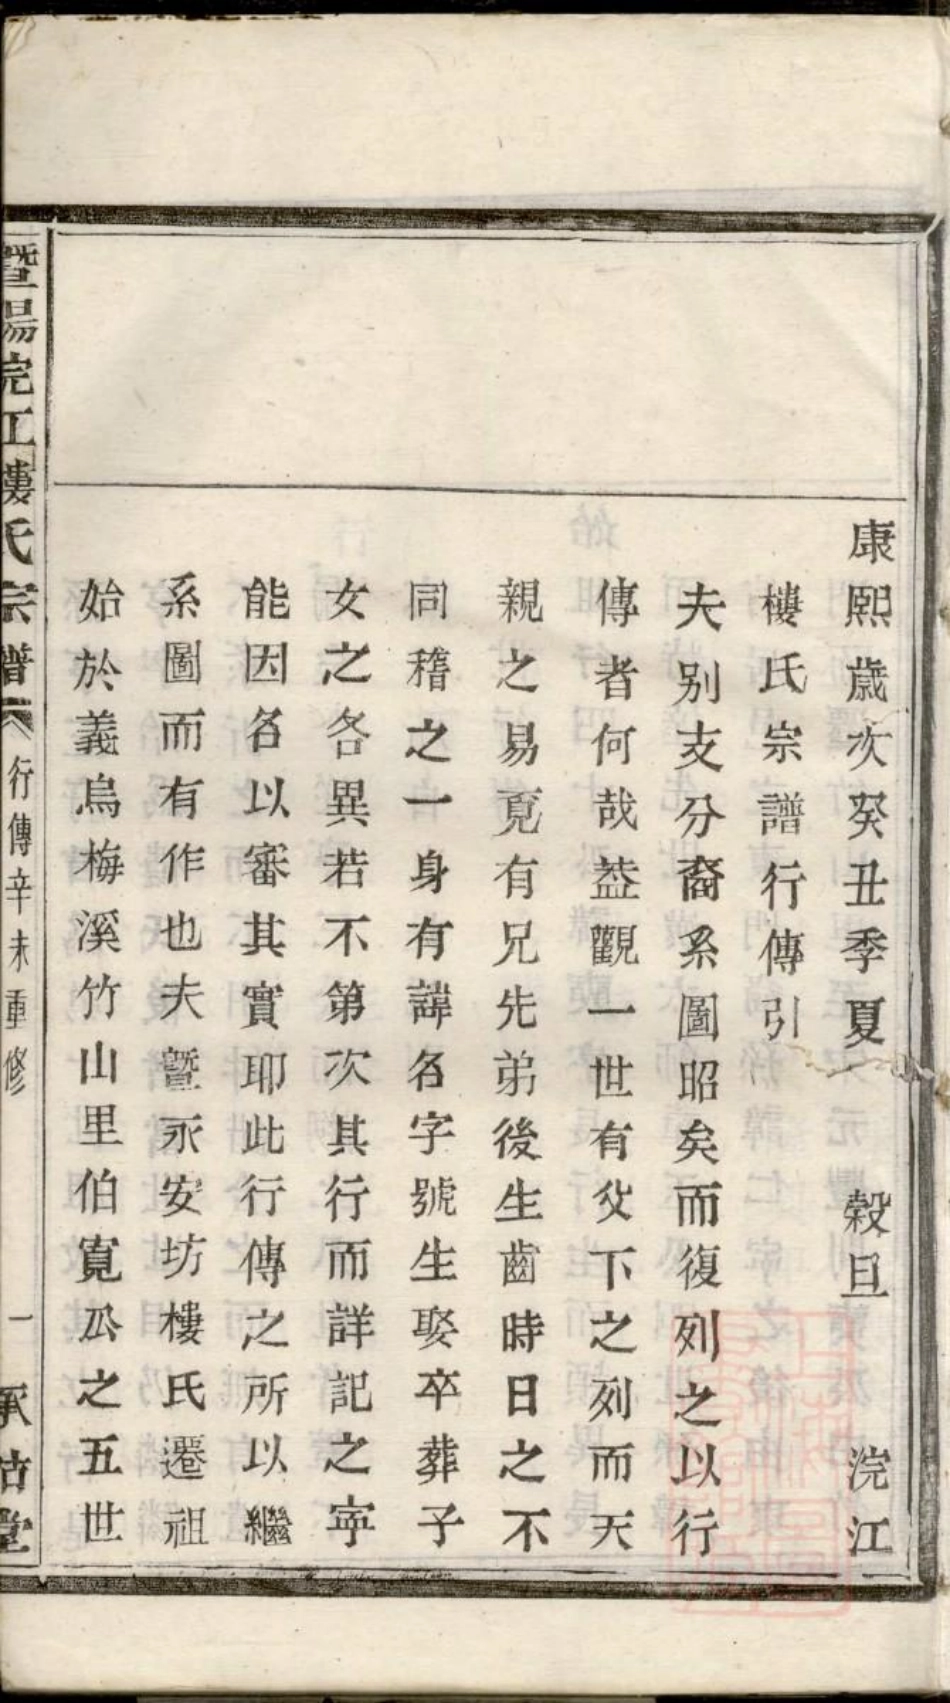 康熙歲次癸丑季夏 穀旦 浣江
樓氏宗譜行傳引
夫別支分裔系圖昭矣而復列之以行
傳者何哉葢觀一世有父下之列而天
親之易覔有兄先弟後生齒時日之不
同稽之一身有諱名字號生娶卒葬子
女之各異若不第次其行而詳記之寕
能因名以審其實耶此行傳之所以繼
系圖而有作也夫暨永安坊樓氏遷祖
始於義烏梅溪竹山里伯寬公之五世
暨陽浣江樓氏宗譜 行傳 辛未重修 一 承祜堂